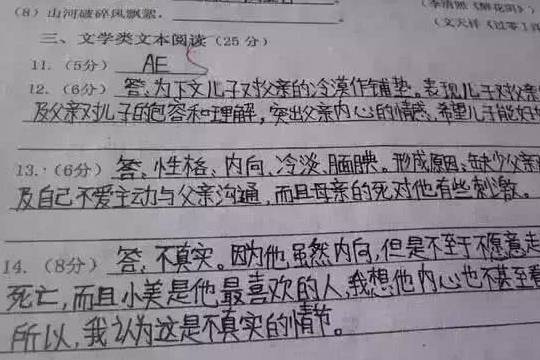 (8)山河破碎风飘絮，
(李清照《醉花阴》)
(文天祥《过零丁洋
三、文学类文本阅读(25分)
11.(5分) AE
12.(6分) 答、为下文儿子对父亲的冷漠作铺垫。表现儿子对父亲
及父亲对儿子的包容和理解，突出父亲内心的情感、希望儿子能好好
13.(6分) 答、性格、内向、冷淡、腼腆。形成原因、缺少父亲
及自己不爱主动与父亲沟通，而且母亲的死对他有些刺激。
14.(8分) 答、不真实。因为他虽然内向，但是不至于不愿意走
死亡，而且小美是他最喜欢的人，我想他内心也不甚至
所以，我认为这是不真实的情节。